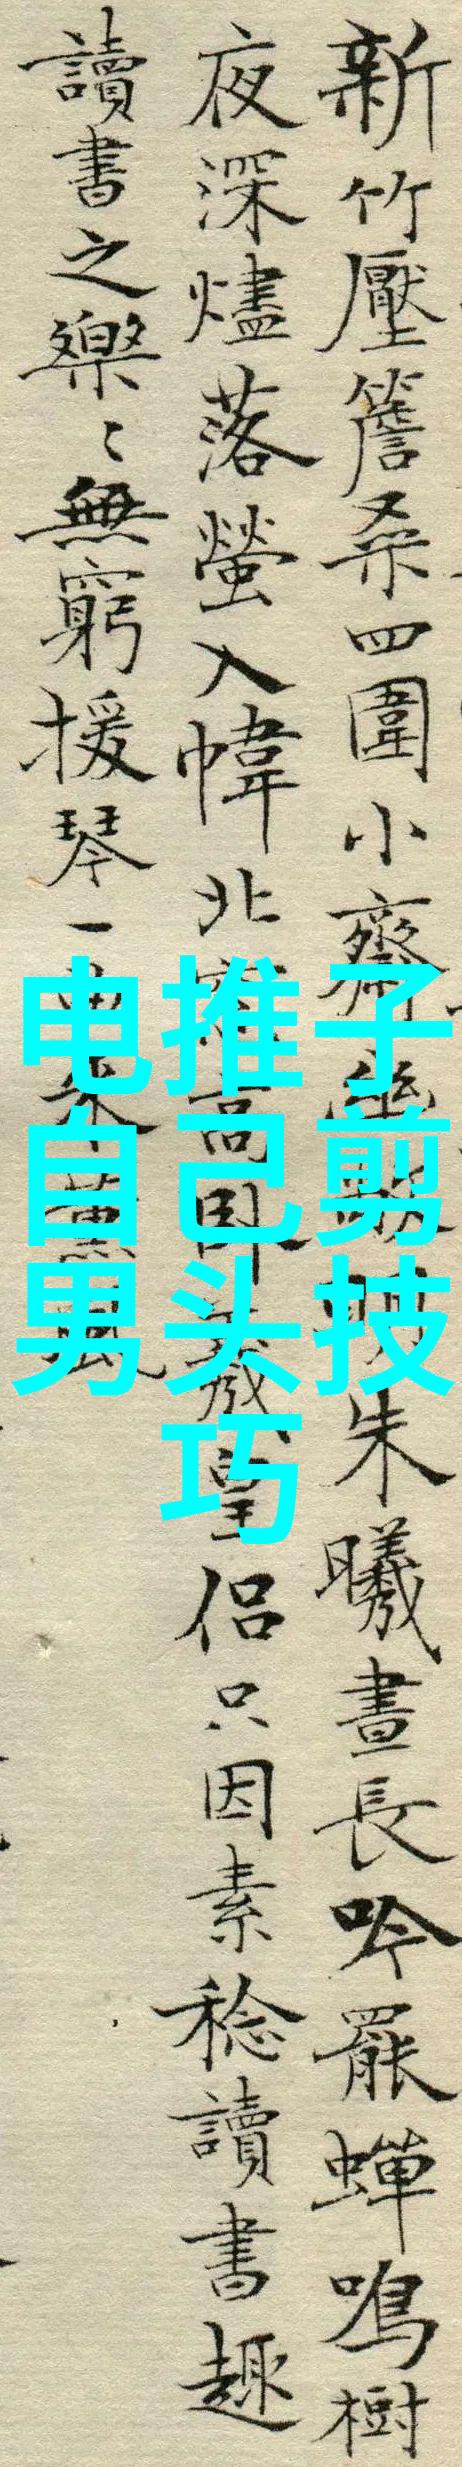 新竹壓簷桑四圍小齋幽敞明朱曦晝長吟罷蟬鳴樹
夜深燼落螢入幃北窗高卧羲皇侶只因素稔讀書趣
讀書之樂〻無窮援琴一曲來薰風
电推子
自己剪
男头技
巧